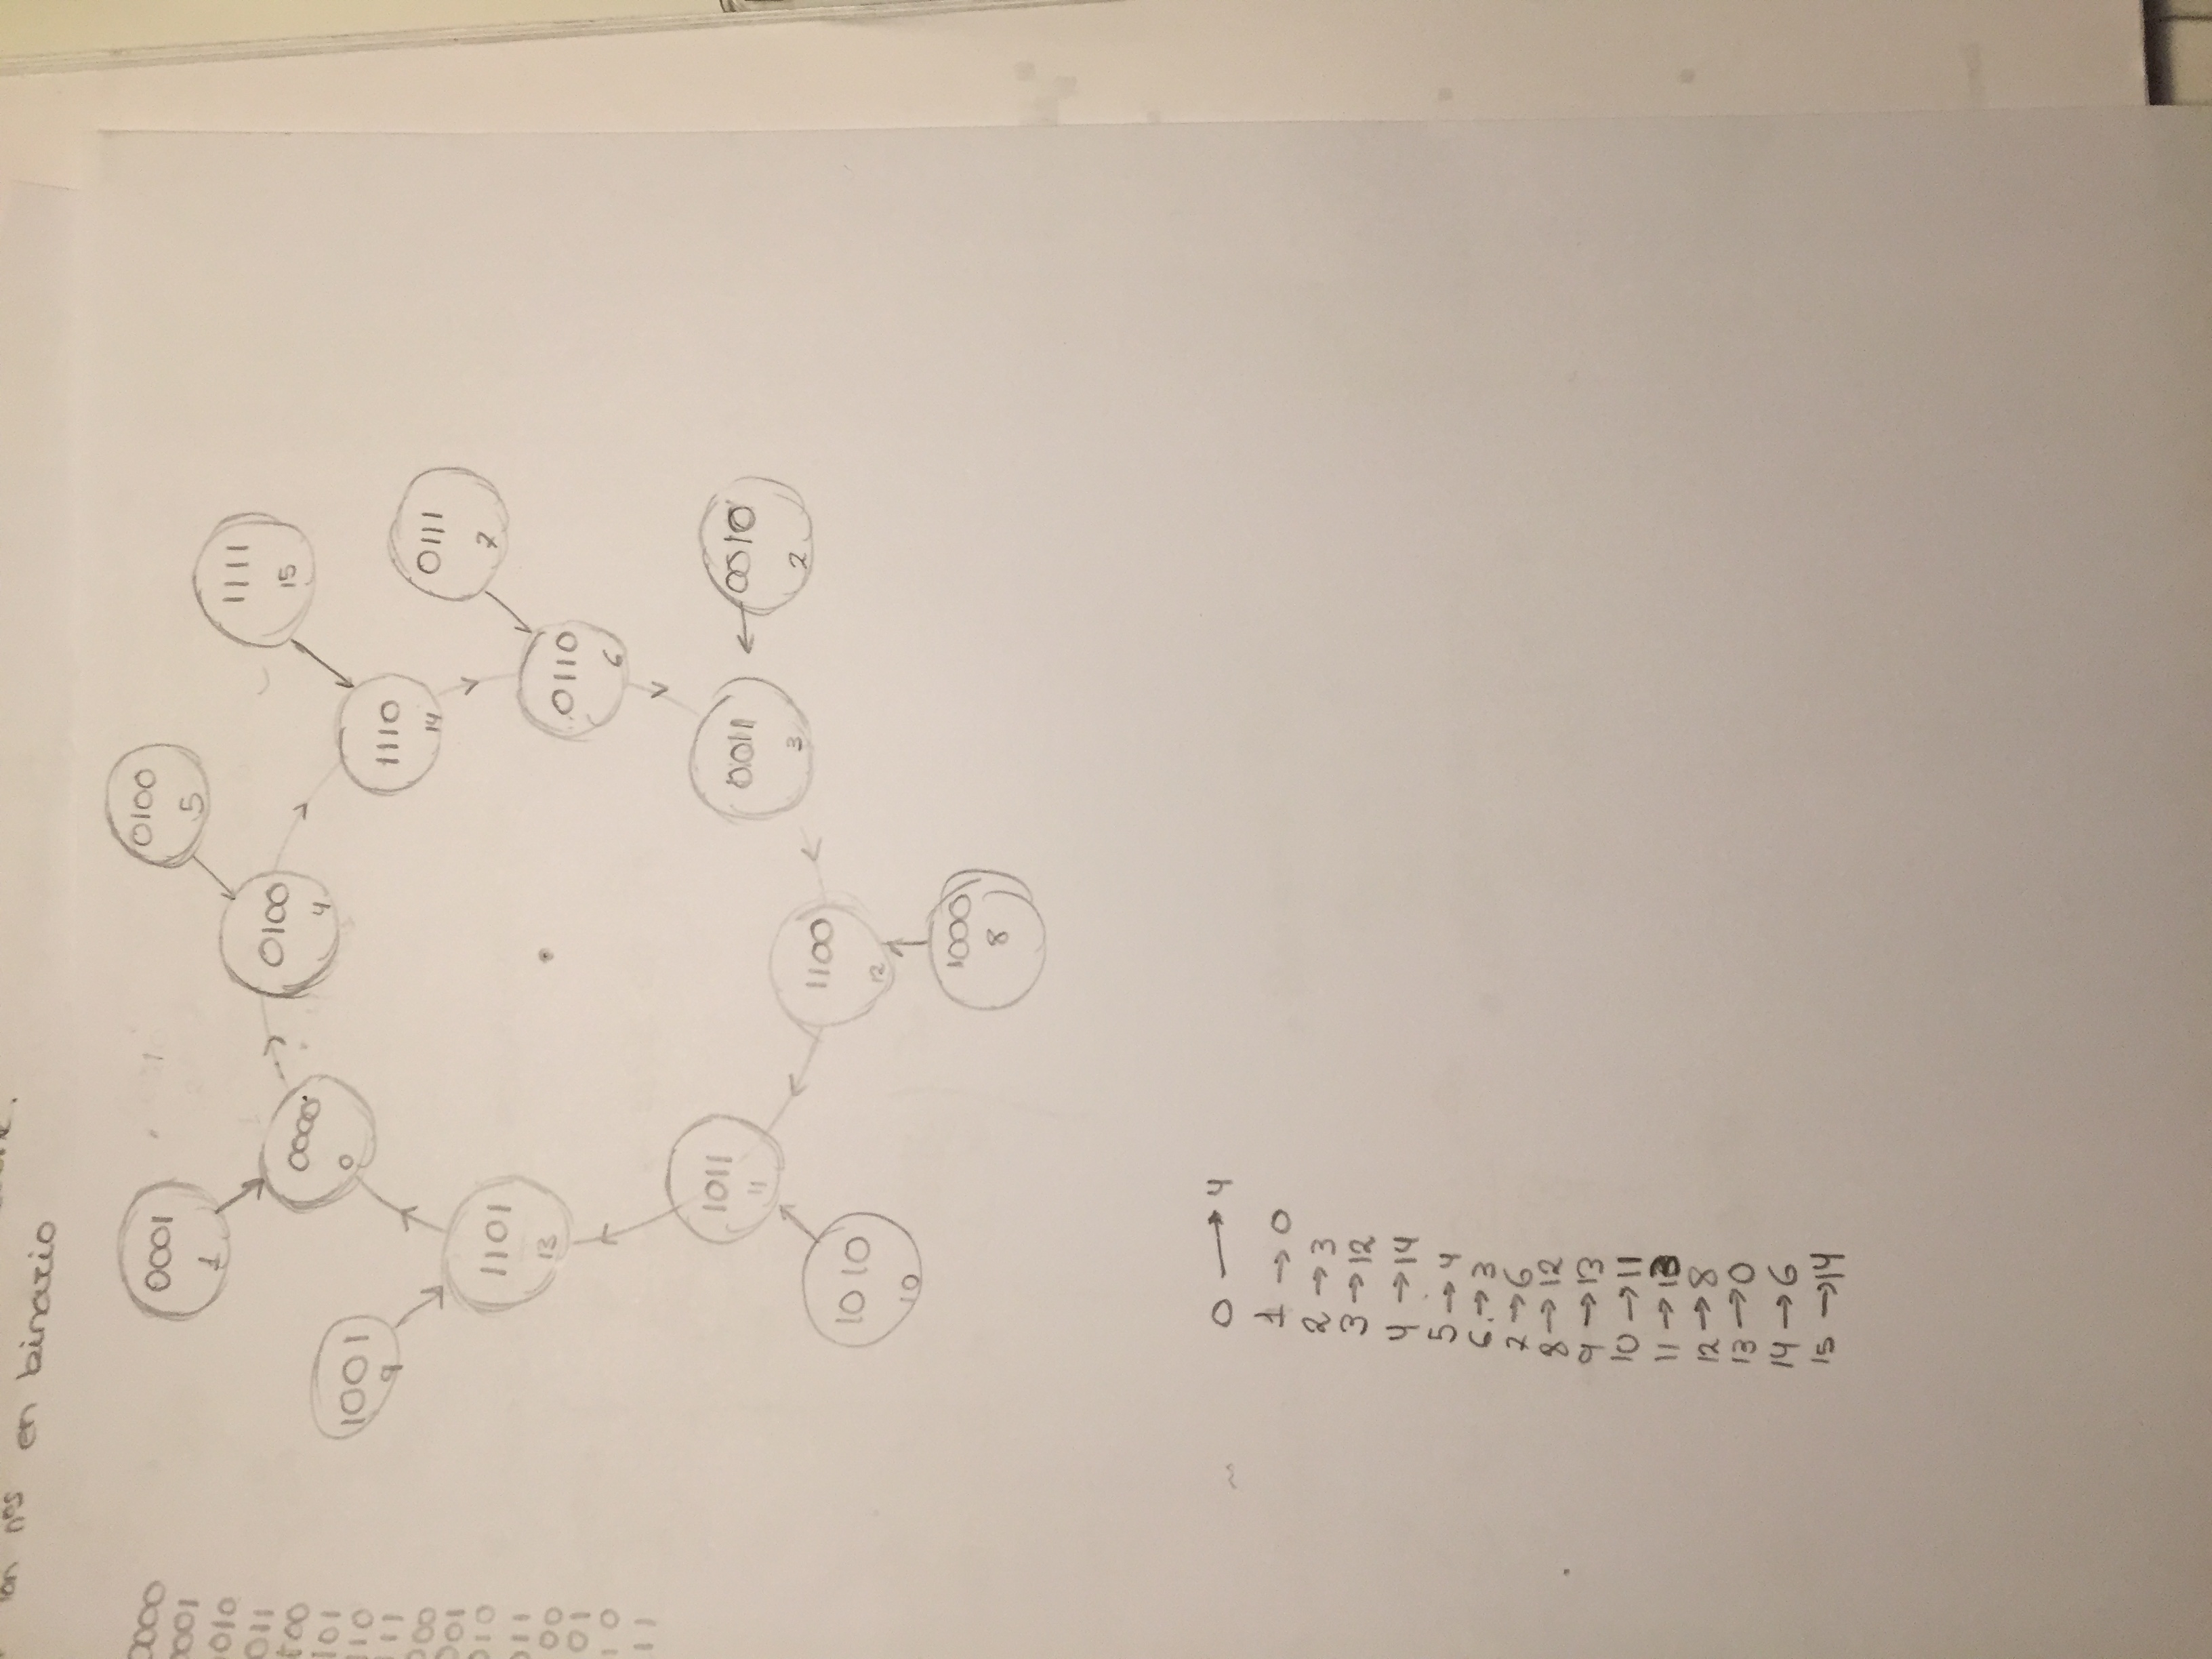 nos en binario
0000
0001
010
011
100
101
110
111
000
001
010
011
00
01
10
11
0001
1
0100
5
1111
15
0000
0
0100
4
1001
9
1110
14
0111
7
1101
13
0110
6
1011
11
0011
3
0010
2
1100
12
1010
10
1000
8
0 → 4
1 → 0
2 → 3
3 → 12
4 → 14
5 → 4
6 → 3
7 → 6
8 → 12
9 → 13
10 → 11
11 → 13
12 → 8
13 → 0
14 → 6
15 → 14